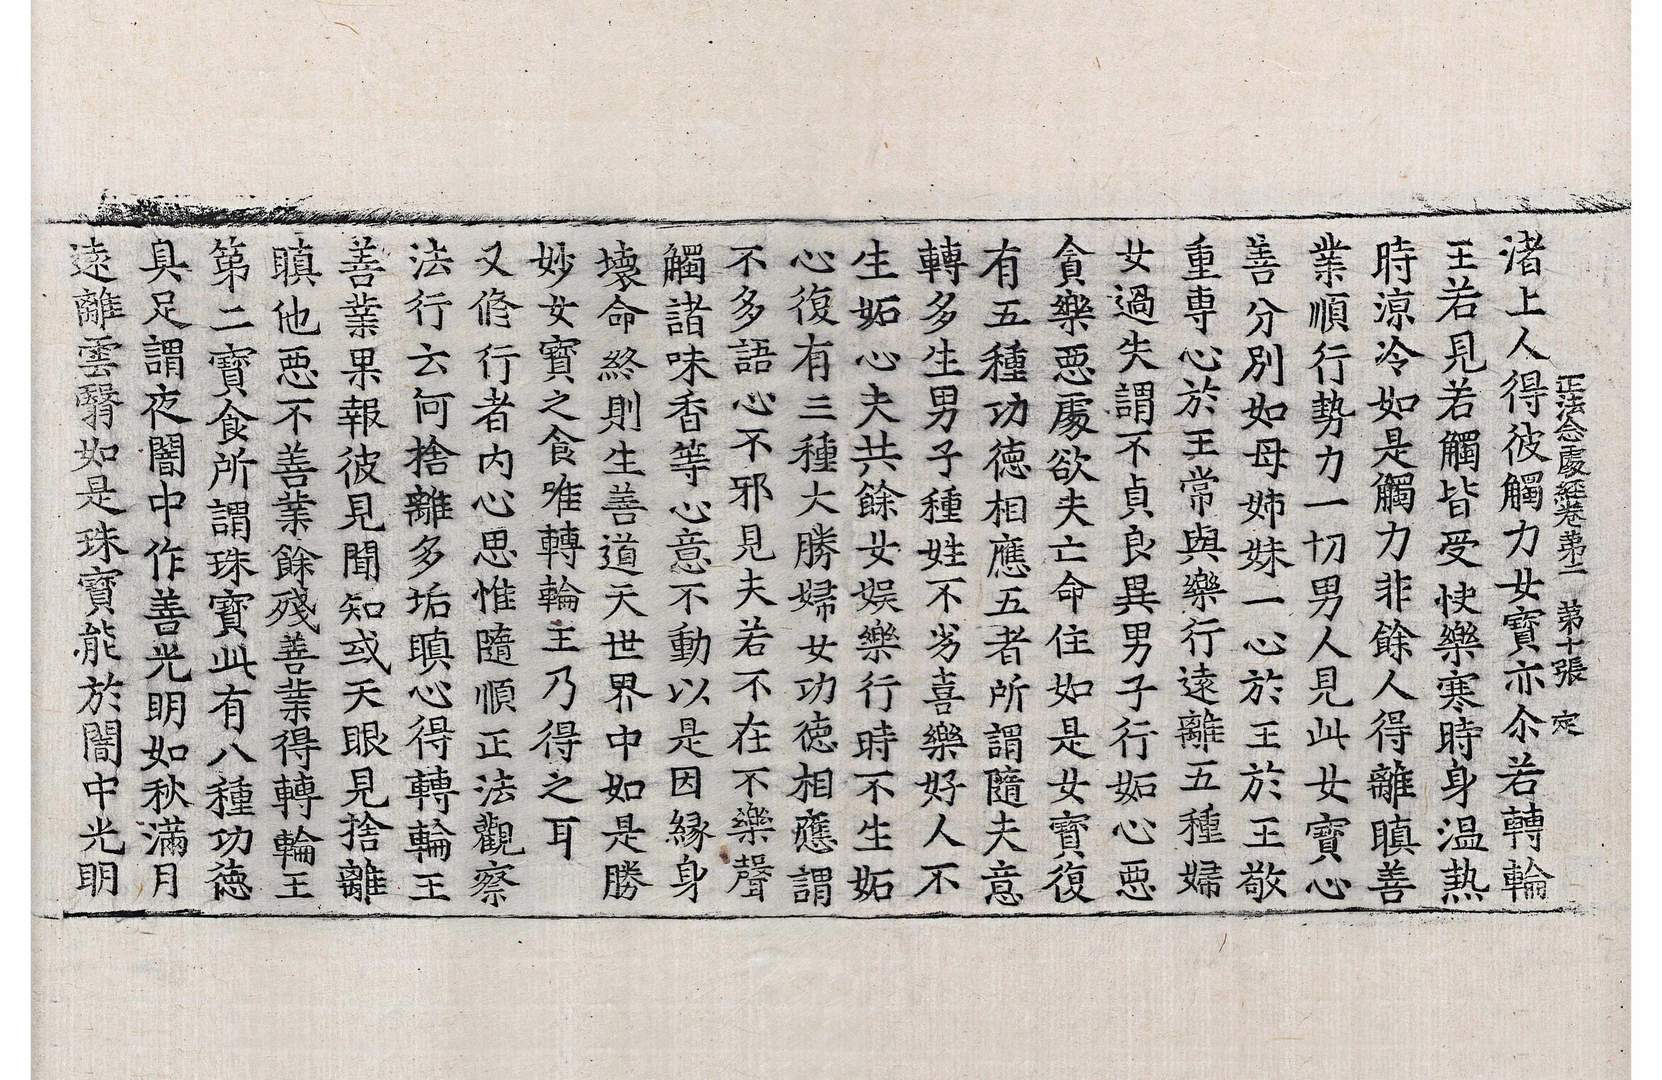 正法念處經卷第二 第十張 定
渚上人得彼觸力女寶亦尒若轉輪
王若見若觸皆受快樂寒時身溫熱
時涼冷如是觸力非餘人得離瞋善
業順行勢力一切男人見此女寶心
善分別如母姊妹一心於王於王敬
重專心於王常與樂行遠離五種婦
女過失謂不貞良異男子行妬心惡
貪樂惡處欲夫亡命住如是女寶復
有五種功德相應五者所謂隨夫意
轉多生男子種姓不劣喜樂好人不
生妬心夫共餘女娛樂行時不生妬
心復有三種大勝婦女功德相應謂
不多語心不邪見夫若不在不樂聲
觸諸味香等心意不動以是因緣身
壞命終則生善道天世界中如是勝
妙女寶之食唯轉輪王乃得之耳
又修行者內心思惟隨順正法觀察
法行云何捨離多垢瞋心得轉輪王
善業果報彼見聞知或天眼見捨離
瞋他惡不善業餘殘善業得轉輪王
第二寶食所謂珠寶此有八種功德
具足謂夜闇中作善光明如秋滿月
遠離雲翳如是珠寶能於闇中光明